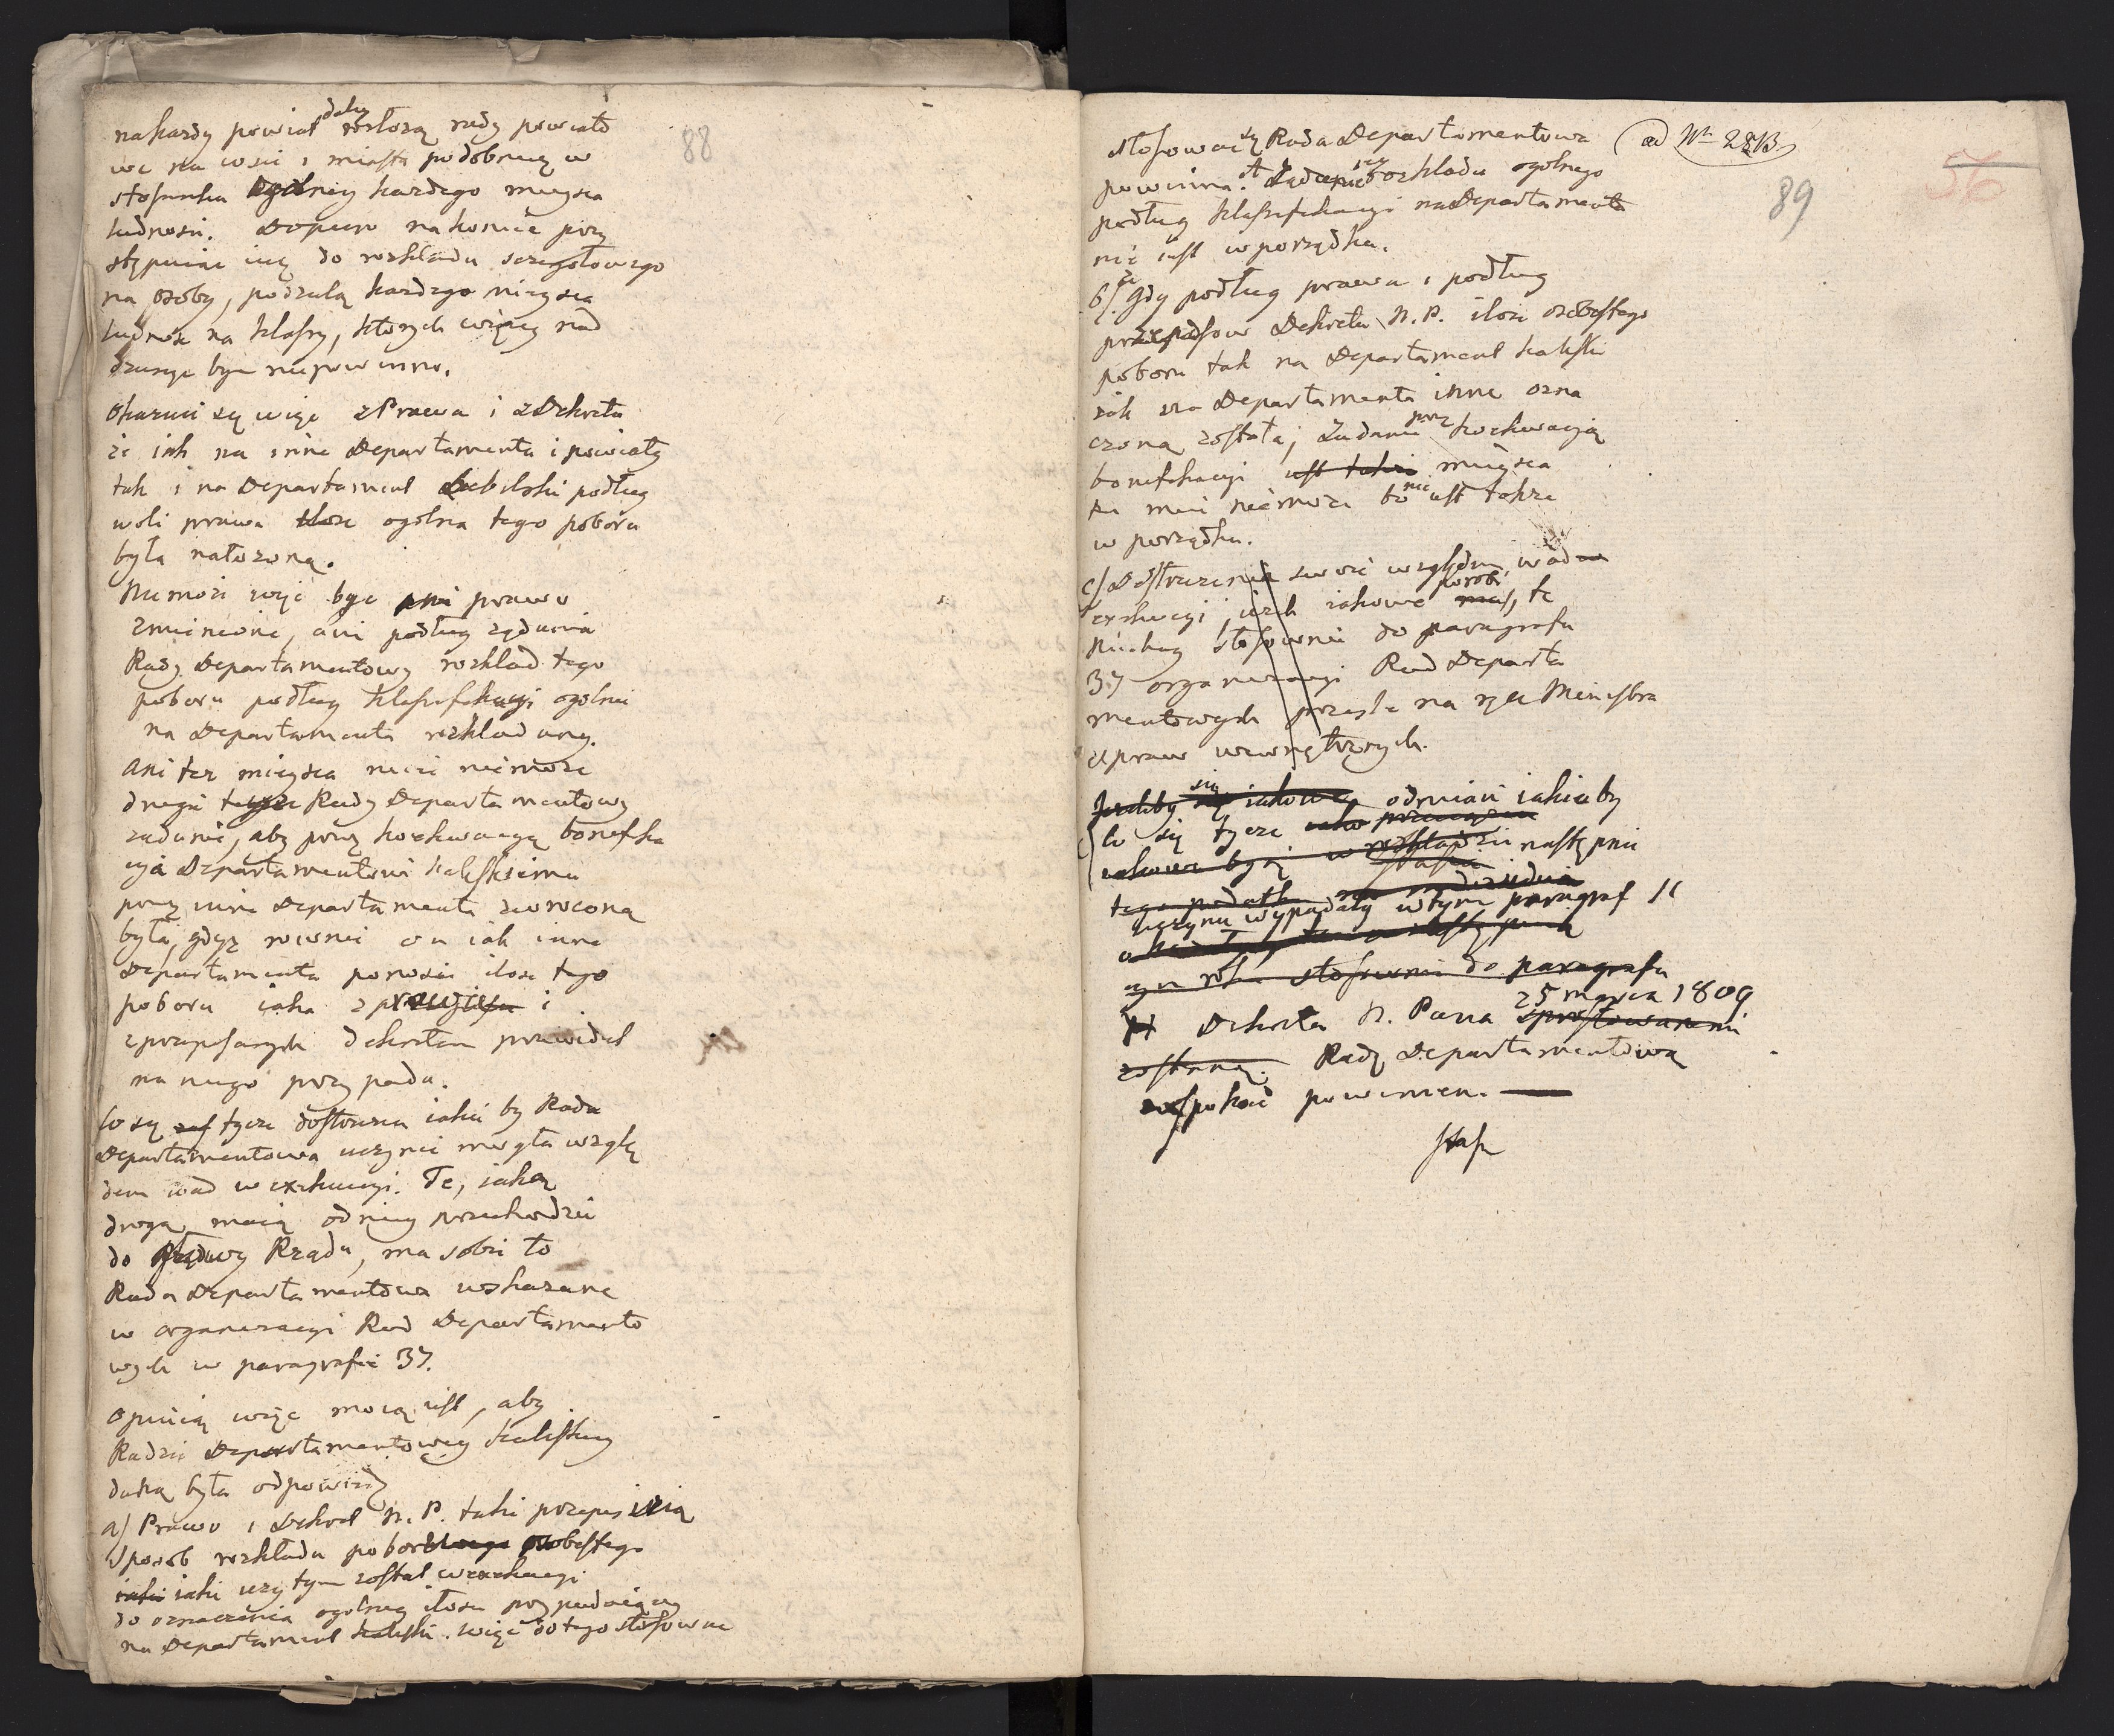 88
na każdy powiat daley rozłożą rady powiato
we na wsie i miasta podobnież w
stosunku ogólney każdego mieysca
ludności. Dopiero na końcu przy
stępuiąc iuż do rozkładu sczegołowego
na osoby, podzielą każdego mieysca
ludność na klassy, których więcey nad
być niepowinno.
Okazuie się więc z Prawa i z Dekretu
że iak na inne Departamenta i powiaty
tak i na Departament podług
woli prawa ilość ogolna tego poboru
była nałożoną.
Niemoże więc być ani prawo
zmienione, ani podług żądania
Rady Departamentowey rozkład tego
poboru podług klassyfikacyi ogolnie
na Departamenta rozkładany.
ani też mieysca mieć niemoże
drugie teyże Rady Departamentowey
żądanie, aby przez koekwacyą bonifika
cyia Departamentowi Kaliskiemu
przez inne Departamenta zwroconą
była, gdyż rownie on iak inne
Departamenta ponosi ilość tego
poboru iaka z i
z przepisanych dekretem prawideł
na niego przypada.
Co się tycze dostrzeżeń iakie by Rada
Departamentowa uczynić mogła wzglę
dem wad w exekucyi. Te, iaką
drogą maią od niey przechodzić
do Rządu, ma sobie to
Rada Departamentowa wskazane
w organizacyi Rad Departamento
wych w paragrafie 37.
Opinią więc moią iest, aby
Radzie Departamentowey Kaliskiey
daną była odpowiedź
a) Prawo i Dekret N. P. taki przepisuią
sposob rozkładu poboru osobistego
iaki użytym został w exekucyi
do oznaczenia ogolney ilości przypadaiącey
na Departament Kaliski. więc do tego stosować
stosować się Rada Departamentowa
ad Nr 28B.
56
89
powinna. Żądanie rozkładu ogolnego
podług klassyfikacyi na Departamenta
nie iest w porządku.
b) Gdy podług prawa i podług
przepisow Dekretu N. P. ilość osobistego
poboru tak na Departament Kaliski
iak na Departamenta inne ozna
czoną została; żądanie przez koekwacyą
bonifikacyi iest także mieysca
mieć niemoże bo nie iest także
w porządku.
c) Dostrzeżenia swoie względem wad w
exekucyi, ieżeli iakowe porobi, te
niechay stosownie do paragrafu
37 organizacyi Rad Departa
mentowych przesle na ręce Ministra
spraw wewnętrznych.
Jeżeliby się iakowe odmian iakieby
Co się tycze
iakowe były w rozkładzie następnie
tego podatku
uczynić wypadały w tym paragraf 11
cym roku stosownie do paragrafu
11 Dekretu N. Pana 25 marca 1809
sprostowanemi
zostaną. Radę Departamentową
zaspokoić powinien.